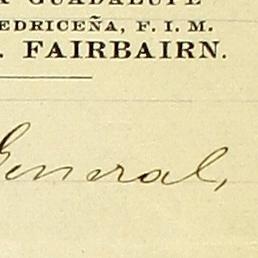 GUADALUPE
EDRICEÑA, F. I. M.
. FAIRBAIRN.
General,